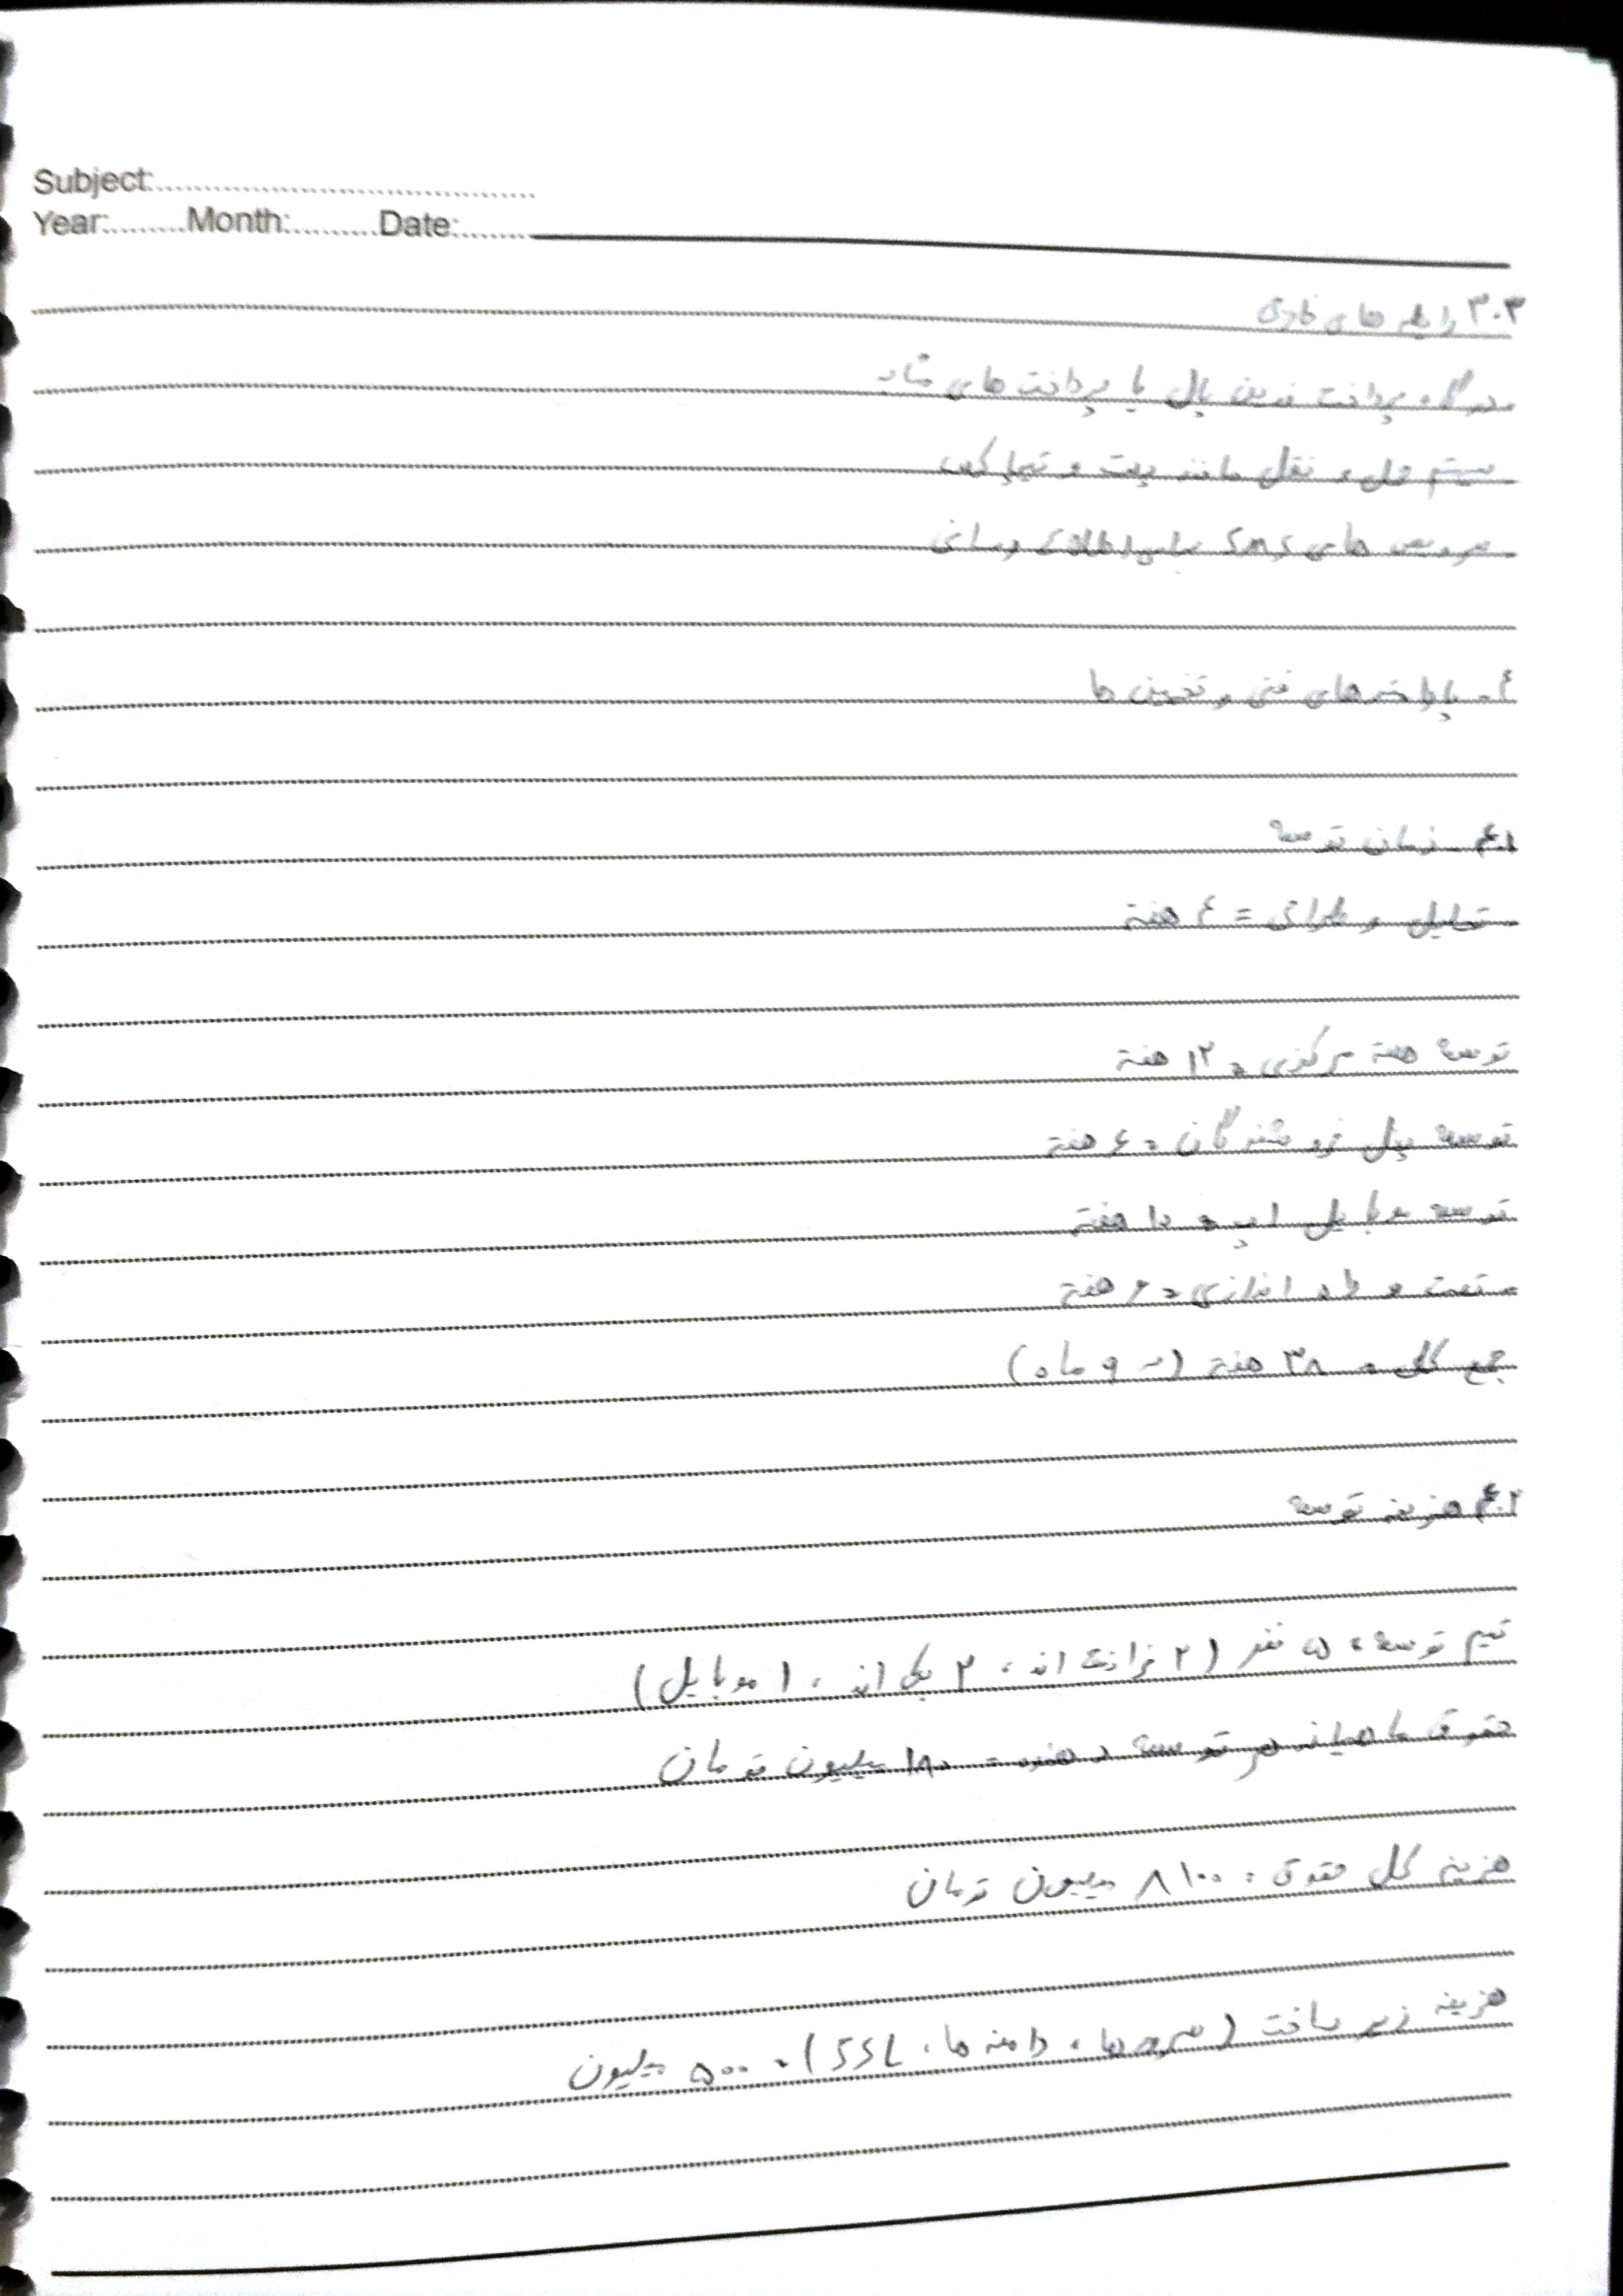 Subject:
Year: Month: Date:
۳.۳ رابط های خارجی
درگاه پرداخت زرین پال یا پرداخت های مشابه
سیستم حمل و نقل مانند پست و تیپاکس
سرویس های SMS برای اطلاع رسانی
۴. پارامترهای فنی و تخمین ها
۴.۱ زمان توسعه
تحلیل و طراحی = ۴ هفته
توسعه هسته مرکزی = ۱۲ هفته
توسعه پنل فروشندگان = ۶ هفته
توسعه موبایل اپ = ۱۰ هفته
تست و راه اندازی = ۶ هفته
جمع کل = ۳۸ هفته (~ ۹ ماه)
۴.۲ هزینه توسعه
تیم توسعه = ۵ نفر (۲ فرانت اند ، ۲ بک اند ، ۱ موبایل)
حقوق ماهیانه هر توسعه دهنده = ۱۸۰ میلیون تومان
هزینه کل حقوق = ۸۱۰۰ میلیون تومان
هزینه زیر ساخت (سرورها ، دامنه ها ، SSL) = ۵۰۰ میلیون